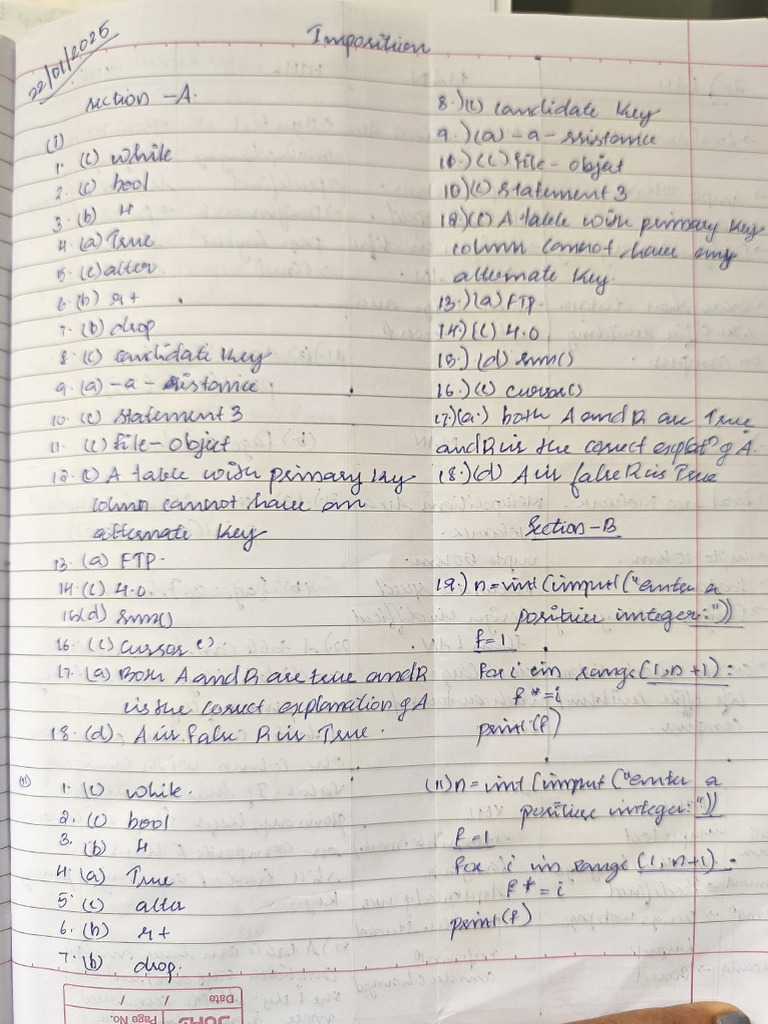 22/01/2025
Imposition
Section - A.
(I)
1. (c) while
2. (c) bool
3. (b) 4
4. (a) True
5. (c) alter
6. (b) r+
7. (b) drop
8. (c) candidate key
9. (a) -a- sistance.
10. (c) statement 3
11. (c) file-object
12. (c) A table with primary key
column cannot have an
alternate key
13. (a) FTP.
14. (c) 4.0
15. (d) sum()
16. (c) cursor()
17. (a) Both A and R are true and R
is the correct explanation of A
18. (d) A is false R is True.
(II)
1. (c) while.
2. (c) bool
3. (b) 4
4. (a) True
5. (c) alter
6. (b) r+
7. (b) drop.
8.) (c) candidate key
9.) (a) -a-ssistance
10.) (c) file-object
10) (c) statement 3
12) (c) A table with primary key
column cannot have any
alternate key.
13.) (a) FTP.
14.) (c) 4.0
15.) (d) sum()
16.) (c) cursor()
17.) (a.) both A and R are True
and R is the correct explatⁿ of A.
18.) (d) A is false R is True
Section-B
19.) n=int(input("enter a
positive integer:"))
f=1
for i in range(1,n+1):
f*=i
print(f)
(II) n=int(input("enter a
positive integer:"))
f=1
for i in range (1,n+1):
f*=i
print(f)
Date / /
Page No.